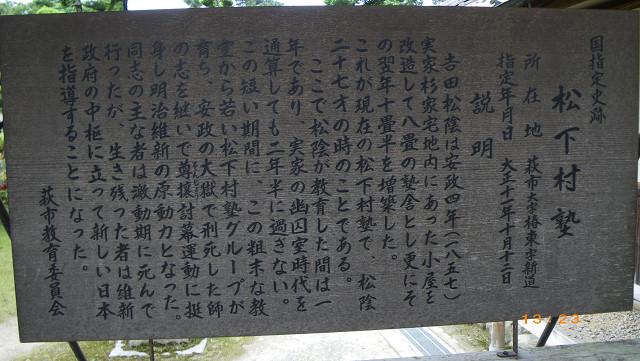 国指定史跡
松下村塾
所在地 萩市大字椿東字新道
指定年月日 大正十一年十月十二日
説明
吉田松陰は安政四年(一八五七)
実家杉家宅地内にあった小屋を
改造して八畳の塾舎とし更にそ
の翌年十畳半を増築した。
これが現在の松下村塾で、松陰
二十七才の時のことである。
ここで松陰が教育した間は一
年であり、実家の幽囚室時代を
通算しても二年半に過ぎない。
この短い期間に、この粗末な教
室から若い松下村塾グループが
育ち、安政の大獄で刑死した師
の志を継いで尊攘討幕運動に挺
身し明治維新の原動力となった。
同志の主な者は激動期に死んで
行ったが、生き残った者は維新
政府の中枢に立って新しい日本
を指導することになった。
萩市教育委員会
13:23